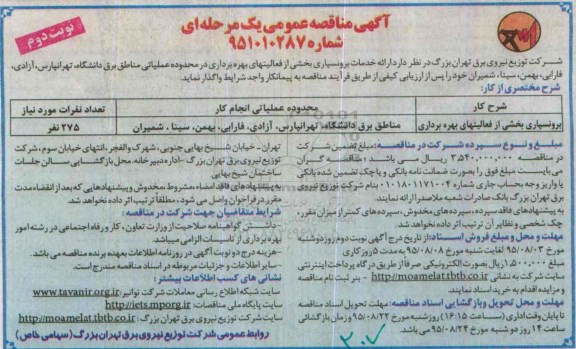 آگهی مناقصه عمومی یک مرحله ای
شماره ۹۵۱۰۱۰۲۸۷
نوبت دوم
شرکت توزیع نیروی برق تهران بزرگ در نظر دارد ارائه خدمات برونسپاری بخشی از فعالیتهای بهره برداری در محدوده عملیاتی مناطق برق دانشگاه، تهرانپارس، آزادی،
فارابی، بهمن، سینا، شمیران خود را پس از ارزیابی کیفی از طریق فرآیند مناقصه به پیمانکار واجد شرایط واگذار نماید.
شرح مختصری از کار:
شرح کار
محدوده عملیاتی انجام کار
تعداد نفرات مورد نیاز
برونسپاری بخشی از فعالیتهای بهره برداری
مناطق برق دانشگاه، تهرانپارس، آزادی، فارابی، بهمن، سینا، شمیران
۲۷۵ نفر
مبلغ و نوع سپرده شرکت در مناقصه: مبلغ تضمین شرکت
در مناقصه ۳,۵۴۰,۰۰۰,۰۰۰ ریال می باشد، مناقصه گران
می بایست مبلغ فوق را بصورت ضمانت نامه بانکی و یا چک تضمین شده بانکی
یا واریز وجه بحساب جاری شماره ۰۱۰۱۸۰۱۱۷۱۰۰۴ بنام شرکت توزیع نیروی
برق تهران بزرگ بانک صادرات شعبه ملاصدرا ارائه نمایند.
به پیشنهادهای فاقد سپرده، سپرده‌های مخدوش، سپرده‌های کمتر از میزان مقرر،
چک شخصی و نظایر آن ترتیب اثر داده نخواهد شد.
مهلت و محل و مبلغ فروش اسناد: از تاریخ درج آگهی نوبت دوم روز دوشنبه
مورخ ۹۵/۰۸/۰۳ لغایت شنبه مورخ ۹۵/۰۸/۰۸ به مدت ۵ روز کاری
۱,۵۰۰,۰۰۰ ریال بصورت الکترونیکی صرفا از طریق درگاه پرداخت اینترنتی
سایت شرکت به نشانی http://moamelat.tbtb.co.ir - بنر ثبت نام مناقصه
و مزایده اقدام به خرید اسناد نمایند.
مهلت و محل تحویل و بازگشایی اسناد مناقصه: مهلت تحویل اسناد مناقصه
تا پایان وقت اداری (ساعت ۱۶:۱۵) روز شنبه مورخ ۹۵/۰۸/۲۲ و زمان بازگشائی
ساعت ۱۴ روز دو شنبه مورخ ۹۵/۰۸/۲۴ می باشد.
تهران - خیابان شیخ بهایی جنوبی، شهرک والفجر، انتهای خیابان سوم، شرکت
توزیع نیروی برق تهران بزرگ - اداره دبیرخانه. محل بازگشایی سالن جلسات
ساختمان شیخ بهایی
به پیشنهادهای فاقد امضاء، مشروط، مخدوش و پیشنهادهایی که بعد از انقضاء مدت
مقرر در فراخوان واصل می شود، مطلقا ترتیب اثر داده نخواهد شد.
شرایط متقاضیان جهت شرکت در مناقصه:
-داشتن گواهینامه صلاحیت از وزارت تعاون، کار و رفاه اجتماعی در رشته امور
بهره برداری از تاسیسات الزامی میباشد.
-هزینه درج دو نوبت آگهی در روزنامه اطلاعات بعهده برنده مناقصه می باشد.
-سایر اطلاعات و جزئیات مربوطه در اسناد مناقصه مندرج است.
نشانی های کسب اطلاعات بیشتر:
سایت شبکه اطلاع رسانی معاملات شرکت توانیر: www.tavanir.org.ir
سایت پایگاه ملی مناقصات: http://iets.mporg.ir
سایت شرکت توزیع نیروی برق تهران بزرگ: http://moamelat.tbtb.co.ir
روابط عمومی شرکت توزیع نیروی برق تهران بزرگ (سهامی خاص)
۳۰۷